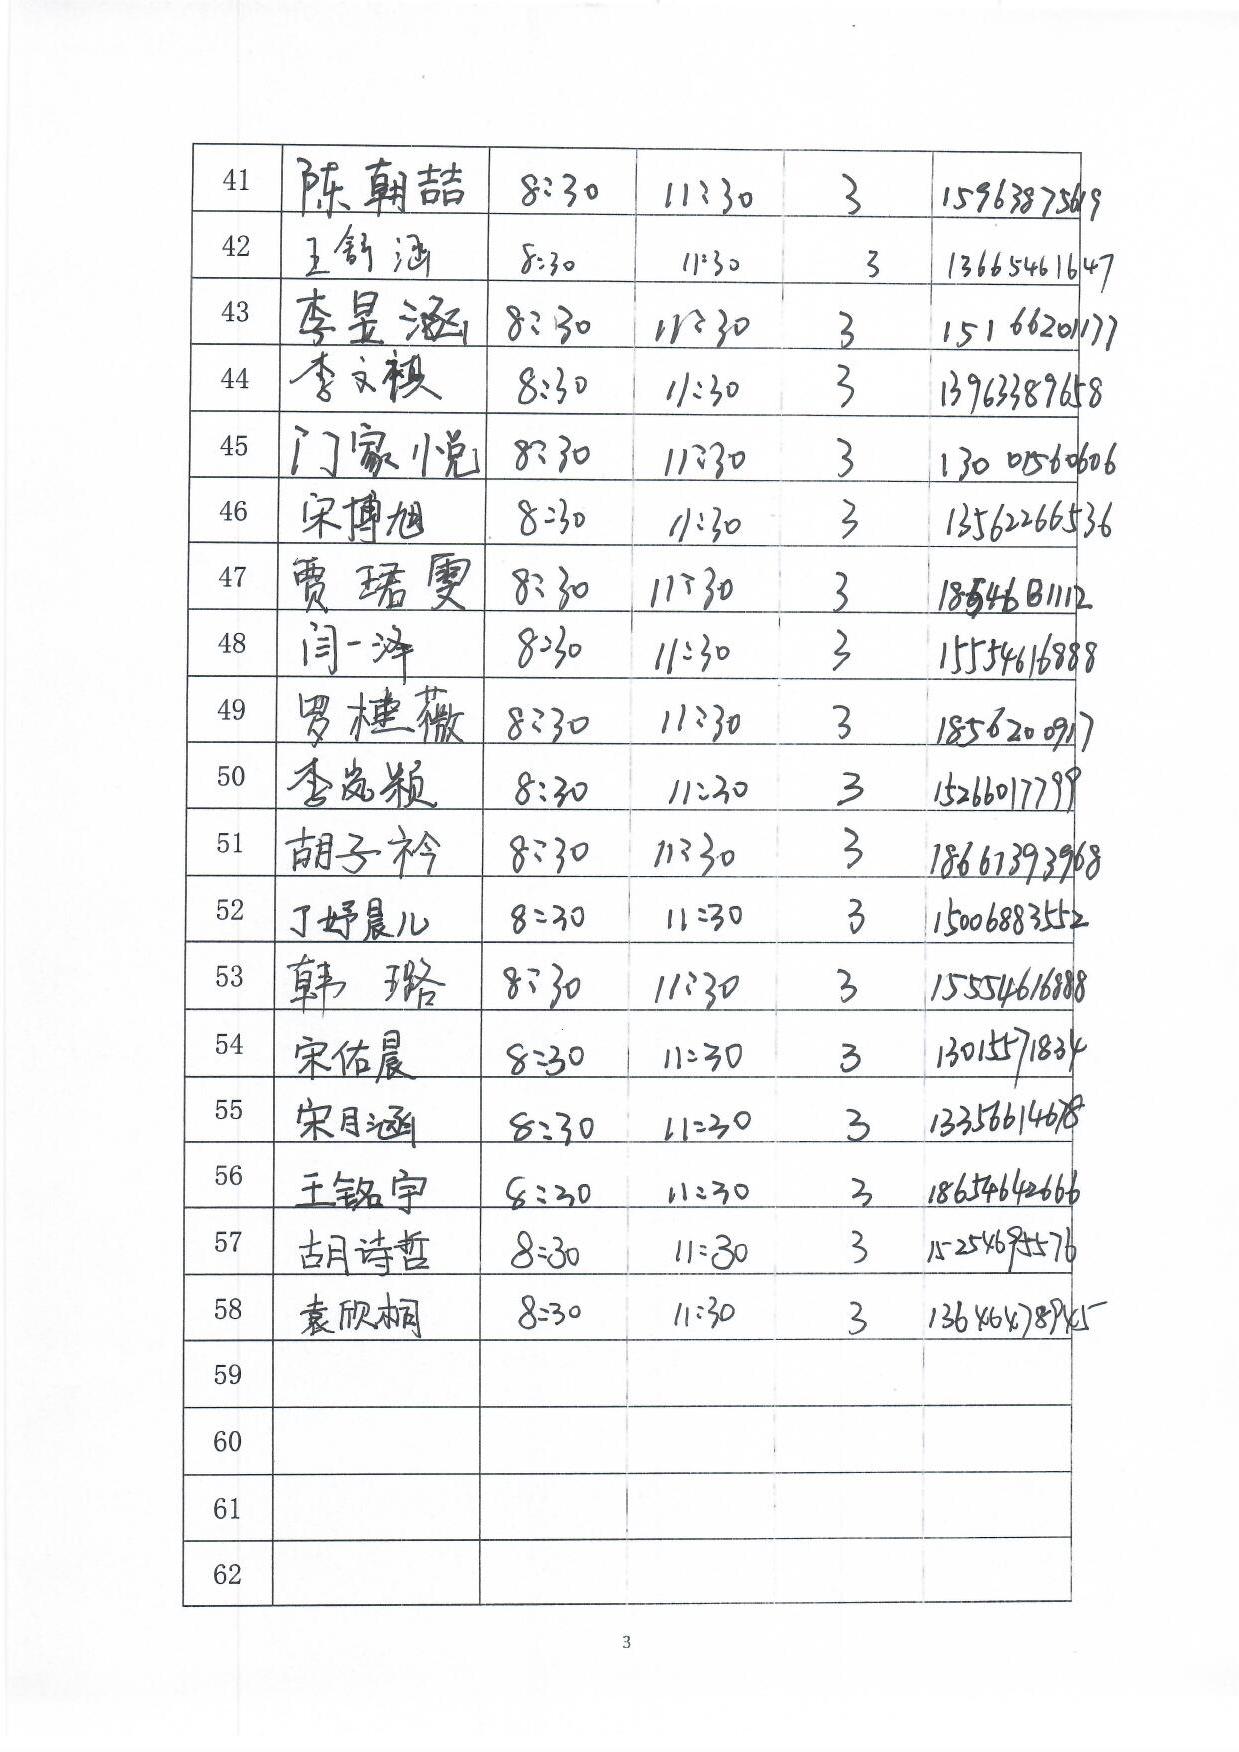 41 陈朝喆 8:30 11:30 3 15963875619
42 王舒涵 8:30 11:30 3 13665461647
43 李昱涵 8:30 11:30 3 15166201177
44 李文祺 8:30 11:30 3 13963389658
45 门家悦 8:30 11:30 3 13001560606
46 宋博旭 8:30 11:30 3 13562266536
47 贾珺雯 8:30 11:30 3
48 闫一泽 8:30 11:30 3 15554616888
49 罗槿薇 8:30 11:30 3 1856200917
50 李岚颖 8:30 11:30 3 15266017799
51 胡子衿 8:30 11:30 3 18661393968
52 丁妤晨儿 8:30 11:30 3 15006883552
53 韩璐 8:30 11:30 3 15554616888
54 宋佑晨 8:30 11:30 3 13015571834
55 宋月涵 8:30 11:30 3 13356614678
56 王铭宇 8:30 11:30 3 18654642666
57 胡诗哲 8:30 11:30 3 15254695576
58 袁欣桐 8:30 11:30 3 13646478945
59
60
61
62
3